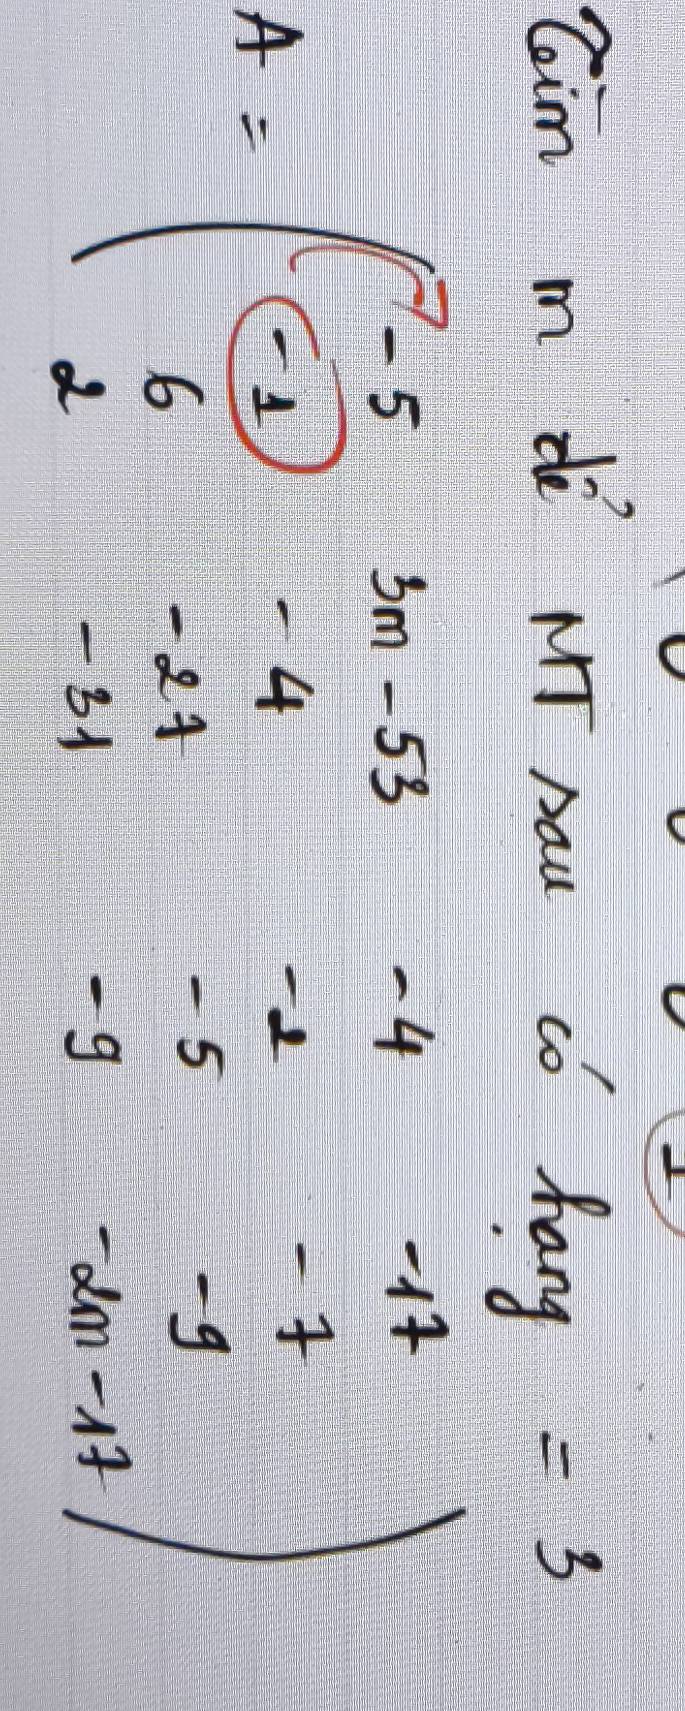 Tìm m để MT sau có hạng = 3
-5 3m-53 -4 -17
A = -1 -4 -2 -7
6 -27 -5 -9
2 -31 -9 -2m-17